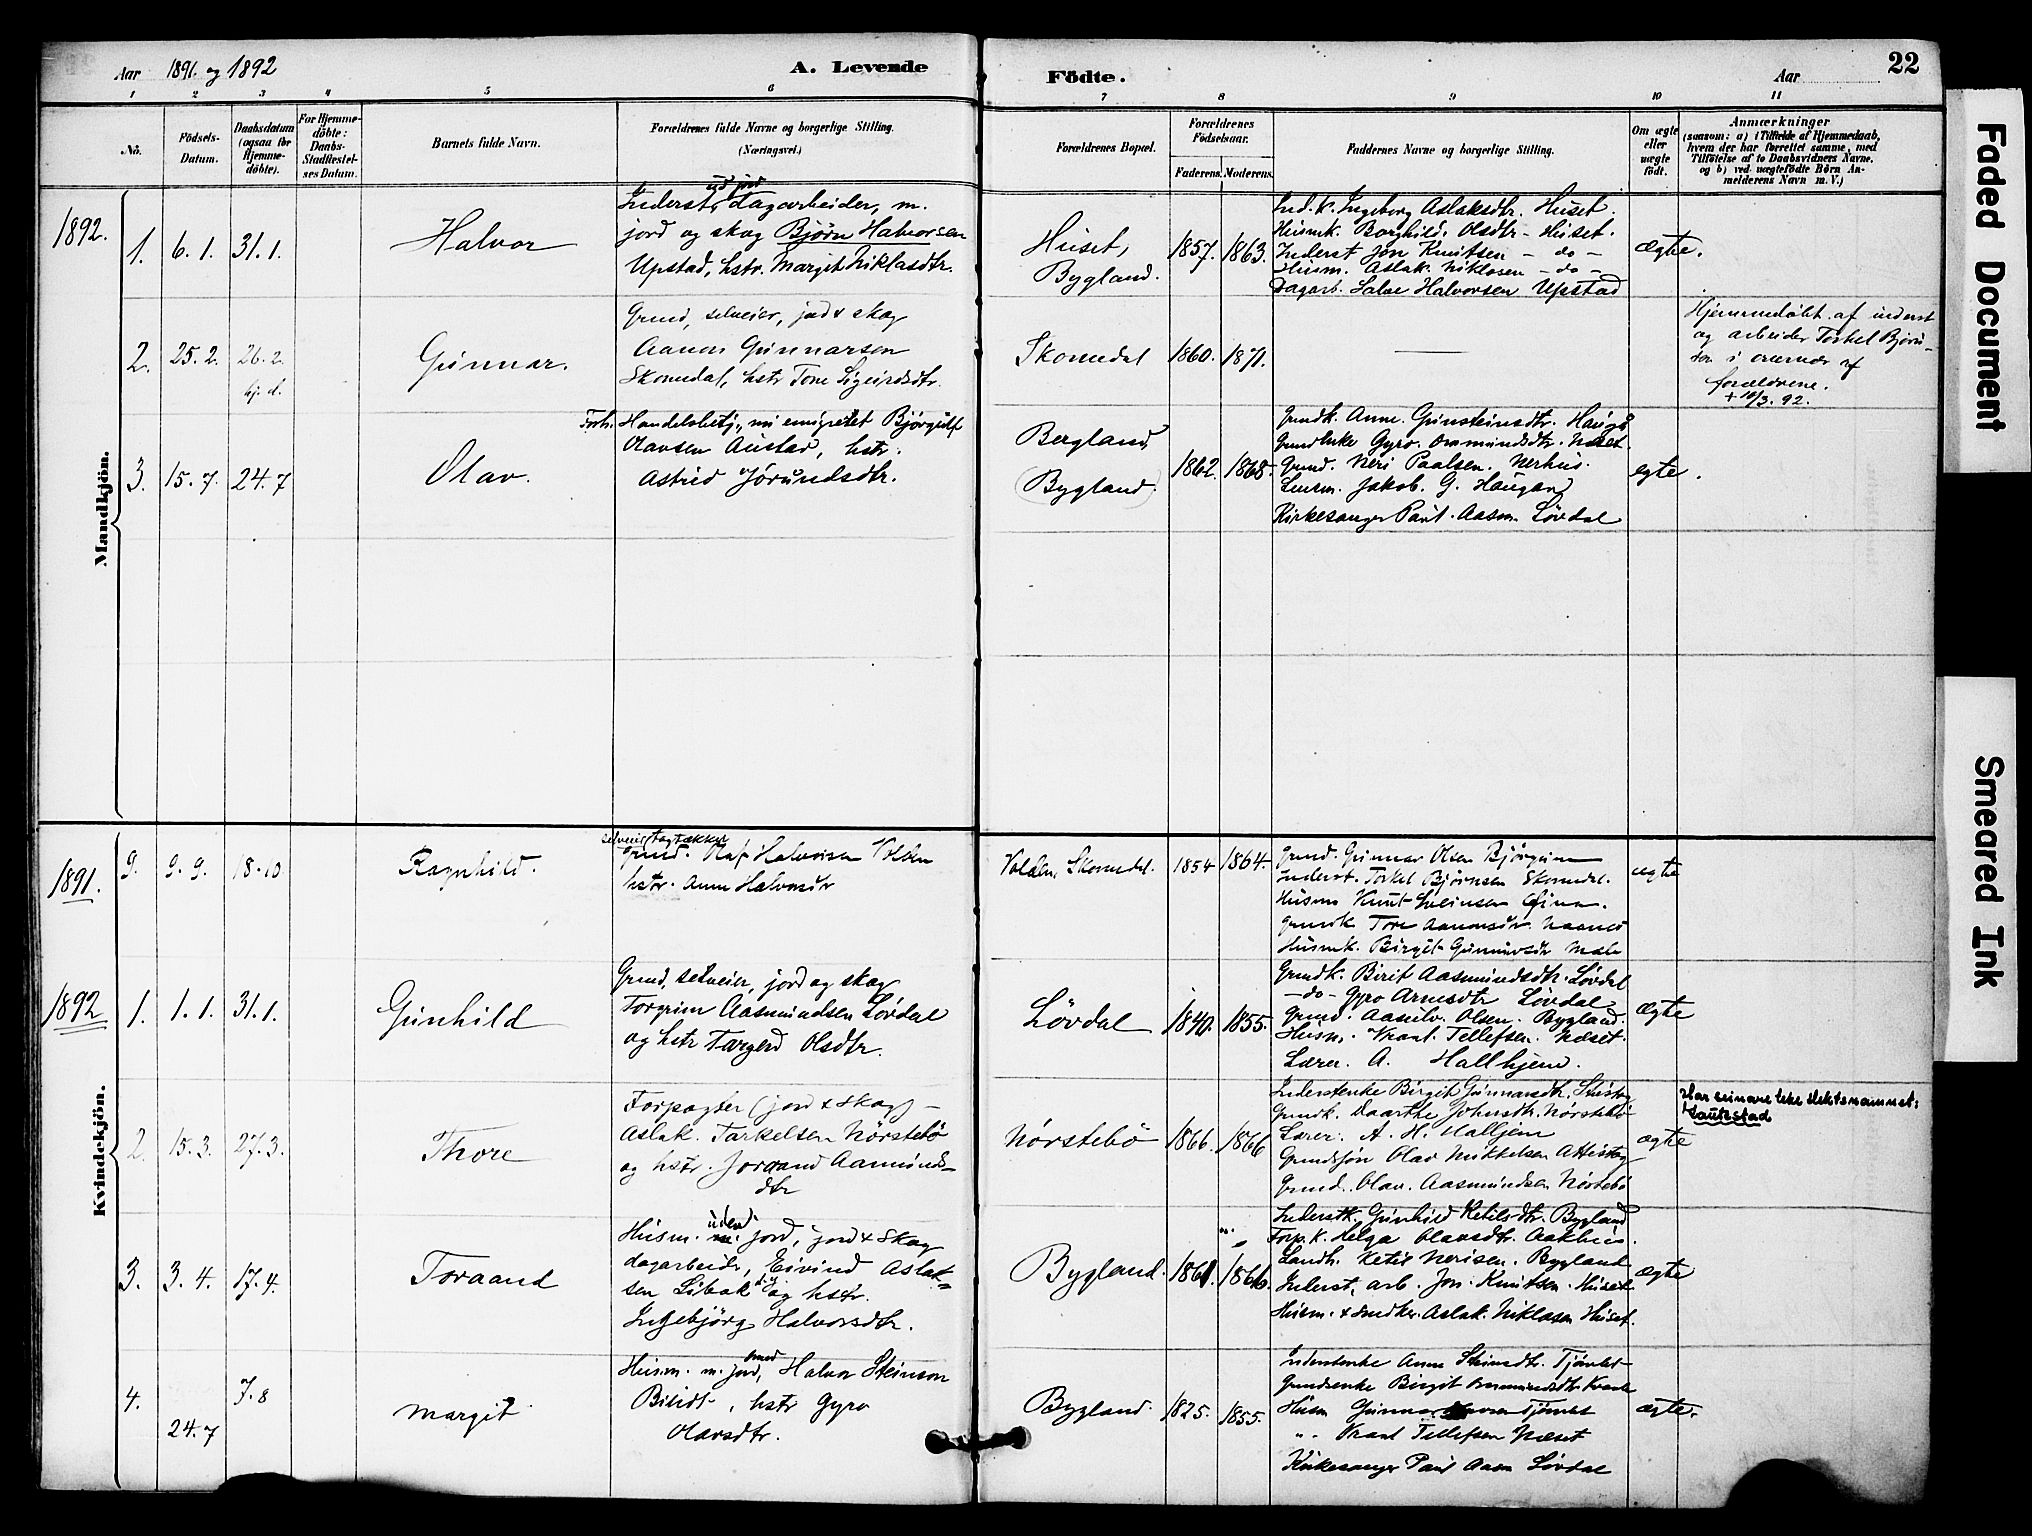 Aar 1891. og 1892
A. Levende
Födte.
Aar
22
1 2 3 4 5 6 7 8 9 10 11
No.
Födsels-
Datum.
Daabsdatum
(ogsaa for
Hjemme-
döbte).
For Hjemme-
döbte:
Daabs-
Stadfæstel-
ses Datum.
Barnets fulde Navn.
Forældrenes fulde Navne og borgerlige Stilling.
(Næringsvei.)
Forældrenes Bopæl.
Forældrenes
Födselsaar.
Faderens. Moderens.
Faddernes Navne og borgerlige Stilling.
Om ægte
eller
uægte
födt.
Anmærkninger
(saasom: a) i Tilfælde af Hjemmedaab,
hvem der har forrettet samme, med
Tilföielse af to Daabsvidners Navne,
og b) ved uægtefödte Börn An-
melderens Navn m. V.)
Mandkjön.
1892.
1. 6.1. 31.1.
Halvor
ud jord
Inderst, Dagarbeider, m.
jord og skog Bjørn Halvorsen
Upstad, hstr. Margit Niklasdtr.
Huset,
Bygland.
1857. 1863.
Ind.k. Ingeborg Aslaksdtr. Huset.
Husmk. Borghild Olsdtr - Huset.
Inderst Jon Knutsen - do -
Husm. Aslak Niklosen - do -
Dagarb. Salve Halvorsen Upstad
ægte.
2. 25.2. 26.2.
hj. d.
Gunnar.
Grund, selveier, jord & skog
Aanon Gunnarsen
Skomedal, hstr Tone Sigurdsdtr.
Skomedal
1860. 1871.
—
Hjemmedøbt af inderst
og arbeider Torkel Bjørn-
sen i nærvær af
forældrene.
+ 10/3. 92.
3. 15.7. 24.7
Olav.
Forh. Handelsbetj., nu emigreret Bjørgulf
Olavsen Austad, hstr.
Astrid Jørundsdtr.
Bergland,
(Bygland.)
1862. 1868.
Grundk. Anne Gunsteinsdtr. Haugå
Grundenke Gyro Ommundsdtr. Næset.
Grund. Neri Paalsen. Nerhus.
Lensm. Jakob. G. Haugan
Kirkesanger Paul Aasm. Løvdal
egte.
Kvindekjön.
1891.
9. 9.9. 18.10
Ragnhild.
selveier tagtækker
Grund. Olaf Halvorsen Volden
hstr. Anne Halvorsdtr
Volden, Skomedal.
1854 1864.
Grund. Gunnar Olsen Bjørgum
Inderst. Torkel Bjørnsen Skomedal.
Husm Knut Sveinsen
Grundk Tore Aanonsdtr
Husmk. Birgit Gunnarsdtr
ægte
1892
1. 1.1. 31.1.
Gunhild
Grund, selveier, jord og skog
Torgrim Aasmundsen Løvdal
og hstr Targerd Olsdtr.
Løvdal
1840. 1855.
Grundk. Birit Aasmundsdtr. Løvdal
- do - Gyro Arnesdtr Løvdal
Grund. Aasulv Olsen. Bygland.
Husm. Tellefsen. Næset.
Lærer. A. Hallhjem.
ægte
2. 15.3. 27.3.
Thore
Forpagter (jord & skog) -
Aslak Tarkelsen Nörstebö
og hstr. Joraand Aanunds-
dtr
Nörstebö
1866. 1866
Inderstenke Birgit Gunnarsdtr.
Grundk. Daarthe Johnsdtr. Nörstebö
Lærer. A. H. Halljem
Grundsøn Olav Mikkelsen
Grund. Olav Aasmundsen Nörstebö
ægte
Har seinare teke slektsnamnet:
3. 3.4. 17.4.
Toraand
uden
Husm. m. jord, jord & skog
dagarbeidr, Eivind Aslak-
sen Libak og hstr.
Ingebjörg Halvorsdtr.
Bygland.
1861. 1866.
Inderstk. Gunhild Ketilsdtr. Bygland
Forp.k. Helga Olavsdtr. Aakhus.
Landh. Ketil Nerisen. Bygland
Inderst, arb. Jon Knutsen. Huset
Husm. & snedker. Aslak Niklosen Huset.
ægte
4. 24.7 7.8
Margit
Husm. m. jord, Halvor Steinson
, hstr Gyro
Olavsdtr.
Bygland.
1825. 1855.
Inderstenke Anne Steinsdtr.
Grundenke Birgit Ommundsdtr
Husm Gunnar
". Tellefsen Næset
Kirkesanger Paul Aasm Løvdal
ægte.
Faded Document
Smeared Ink